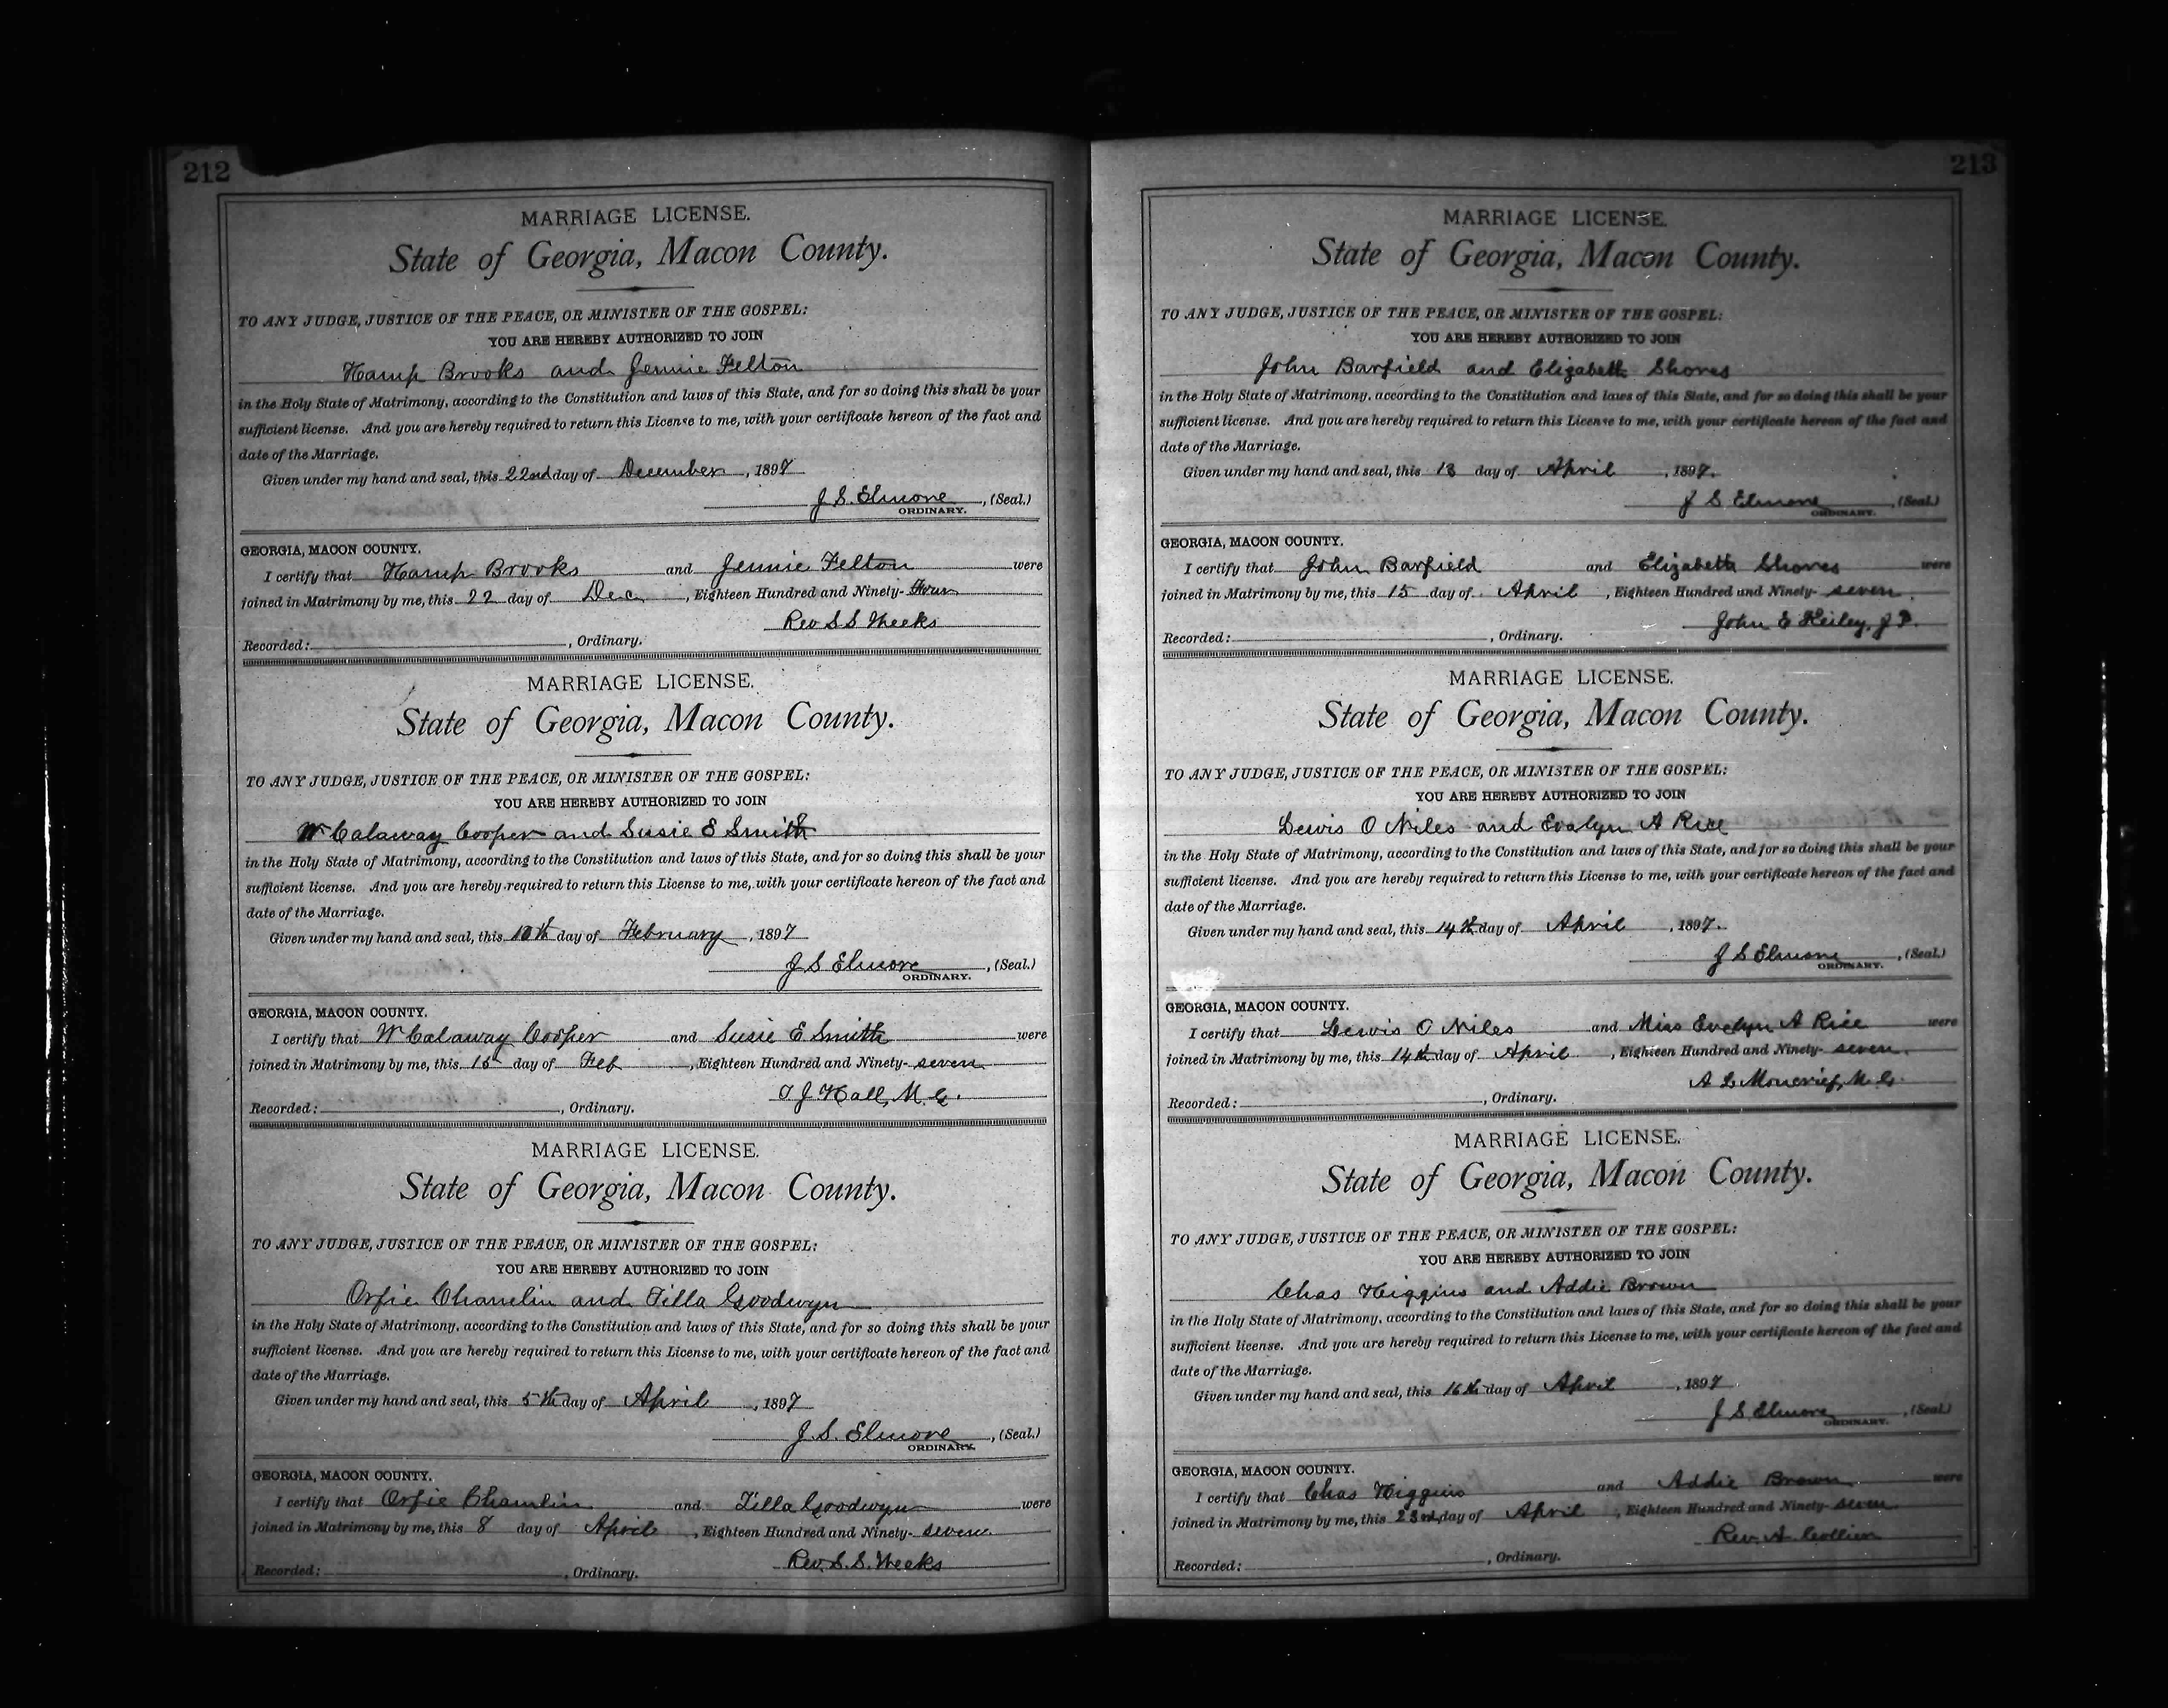 212
MARRIAGE LICENSE.
State of Georgia, Macon County.
TO ANY JUDGE, JUSTICE OF THE PEACE, OR MINISTER OF THE GOSPEL:
YOU ARE HEREBY AUTHORIZED TO JOIN
Hamp Brooks and Jennie Felton
in the Holy State of Matrimony, according to the Constitution and laws of this State, and for so doing this shall be your
sufficient license. And you are hereby required to return this License to me, with your certificate hereon of the fact and
date of the Marriage.
Given under my hand and seal, this 22nd day of December, 1897
J. S. Elmore, (Seal.)
ORDINARY.
GEORGIA, MACON COUNTY.
I certify that Hamp Brooks and Jennie Felton were
joined in Matrimony by me, this 22 day of Dec, Eighteen Hundred and Ninety-
Rev S S Weeks
Recorded: , Ordinary.
MARRIAGE LICENSE.
State of Georgia, Macon County.
TO ANY JUDGE, JUSTICE OF THE PEACE, OR MINISTER OF THE GOSPEL:
YOU ARE HEREBY AUTHORIZED TO JOIN
W Calaway Cooper and Susie E Smith
in the Holy State of Matrimony, according to the Constitution and laws of this State, and for so doing this shall be your
sufficient license. And you are hereby required to return this License to me, with your certificate hereon of the fact and
date of the Marriage.
Given under my hand and seal, this 10th day of February, 1897
J S Elmore, (Seal.)
ORDINARY.
GEORGIA, MACON COUNTY.
I certify that W Calaway Cooper and Susie E Smith were
joined in Matrimony by me, this day of Feb, Eighteen Hundred and Ninety-seven
J Hall, M. G.
Recorded: , Ordinary.
MARRIAGE LICENSE.
State of Georgia, Macon County.
TO ANY JUDGE, JUSTICE OF THE PEACE, OR MINISTER OF THE GOSPEL:
YOU ARE HEREBY AUTHORIZED TO JOIN
Orfie Chamlin and Tilla Goodwyn
in the Holy State of Matrimony, according to the Constitution and laws of this State, and for so doing this shall be your
sufficient license. And you are hereby required to return this License to me, with your certificate hereon of the fact and
date of the Marriage.
Given under my hand and seal, this 5th day of April, 1897
J. S. Elmore, (Seal.)
ORDINARY.
GEORGIA, MACON COUNTY.
I certify that Orfie Chamlin and Tilla Goodwyn were
joined in Matrimony by me, this 8 day of April, Eighteen Hundred and Ninety-seven.
Rev. S. S. Weeks
Recorded: , Ordinary.
213
MARRIAGE LICENSE.
State of Georgia, Macon County.
TO ANY JUDGE, JUSTICE OF THE PEACE, OR MINISTER OF THE GOSPEL:
YOU ARE HEREBY AUTHORIZED TO JOIN
John Barfield and Elizabeth Shores
in the Holy State of Matrimony, according to the Constitution and laws of this State, and for so doing this shall be your
sufficient license. And you are hereby required to return this License to me, with your certificate hereon of the fact and
date of the Marriage.
Given under my hand and seal, this 13 day of April, 1897.
J S Elmore, (Seal.)
ORDINARY.
GEORGIA, MACON COUNTY.
I certify that John Barfield and Elizabeth Shores were
joined in Matrimony by me, this 15 day of April, Eighteen Hundred and Ninety-seven.
John E Keiley, J P.
Recorded: , Ordinary.
MARRIAGE LICENSE.
State of Georgia, Macon County.
TO ANY JUDGE, JUSTICE OF THE PEACE, OR MINISTER OF THE GOSPEL:
YOU ARE HEREBY AUTHORIZED TO JOIN
Lewis O Niles and Evalyn A Rice
in the Holy State of Matrimony, according to the Constitution and laws of this State, and for so doing this shall be your
sufficient license. And you are hereby required to return this License to me, with your certificate hereon of the fact and
date of the Marriage.
Given under my hand and seal, this 14th day of April, 1897.
J S Elmore, (Seal.)
ORDINARY.
GEORGIA, MACON COUNTY.
I certify that Lewis O Niles and Miss Evelyn A Rice were
joined in Matrimony by me, this 14th day of April, Eighteen Hundred and Ninety-seven.
A L Moncrief, M. G.
Recorded: , Ordinary.
MARRIAGE LICENSE.
State of Georgia, Macon County.
TO ANY JUDGE, JUSTICE OF THE PEACE, OR MINISTER OF THE GOSPEL:
YOU ARE HEREBY AUTHORIZED TO JOIN
Chas Higgins and Addie Brown
in the Holy State of Matrimony, according to the Constitution and laws of this State, and for so doing this shall be your
sufficient license. And you are hereby required to return this License to me, with your certificate hereon of the fact and
date of the Marriage.
Given under my hand and seal, this 16th day of April, 1897
J S Elmore, (Seal.)
ORDINARY.
GEORGIA, MACON COUNTY.
I certify that Chas Higgins and Addie Brown were
joined in Matrimony by me, this 23rd day of April, Eighteen Hundred and Ninety-seven.
Rev. A. Collier
Recorded: , Ordinary.